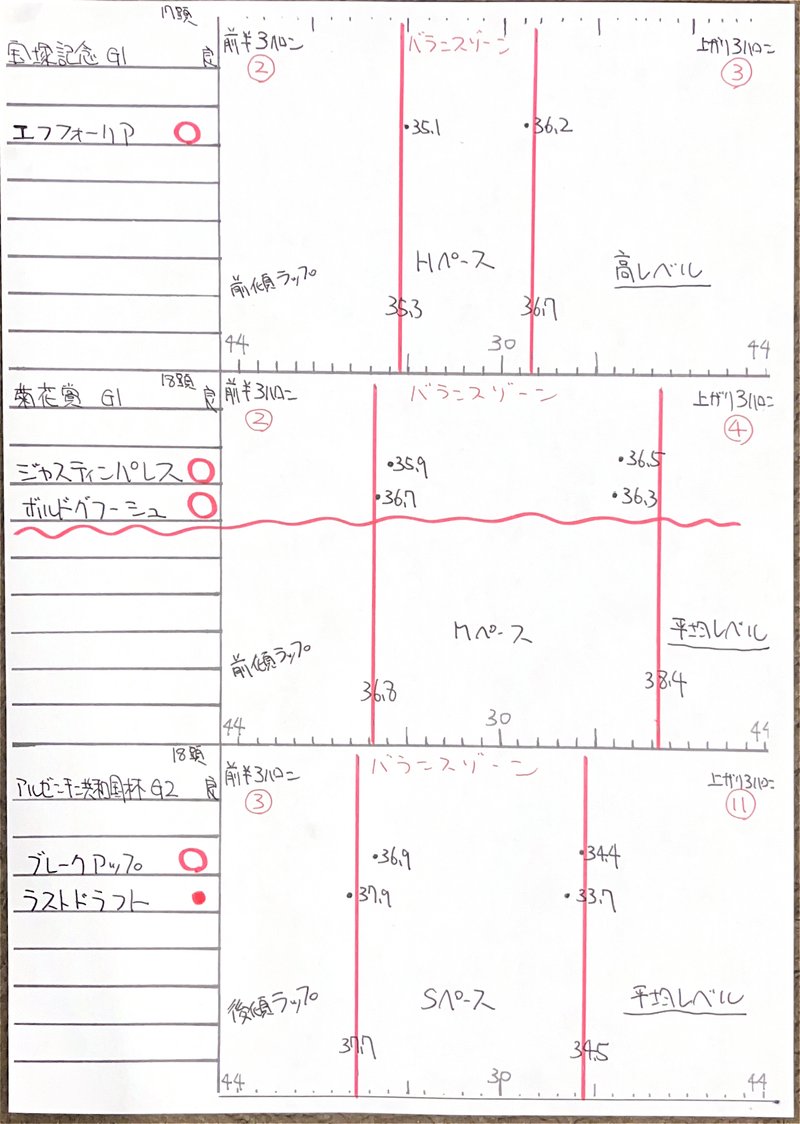 17頭
宝塚記念 G1 良
前半3ハロン
バランスゾーン
上がり3ハロン
②
③
エフフォーリア ○
•35.1
•36.2
Hペース
高レベル
前傾ラップ
35.3
36.7
44
30
44
18頭
菊花賞 G1 良
前半3ハロン
バランスゾーン
上がり3ハロン
②
④
ジャスティンパレス ○
•35.9
•36.5
ボルドグフーシュ ○
•36.7
•36.3
Mペース
平均レベル
前傾ラップ
36.8
38.4
44
30
44
18頭
アルゼンチン共和国杯 G2 良
前半3ハロン
バランスゾーン
上がり3ハロン
③
⑪
ブレークアップ ○
•36.9
•34.4
ラストドラフト ●
•37.9
•33.7
後傾ラップ
Sペース
平均レベル
37.7
34.5
44
30
44